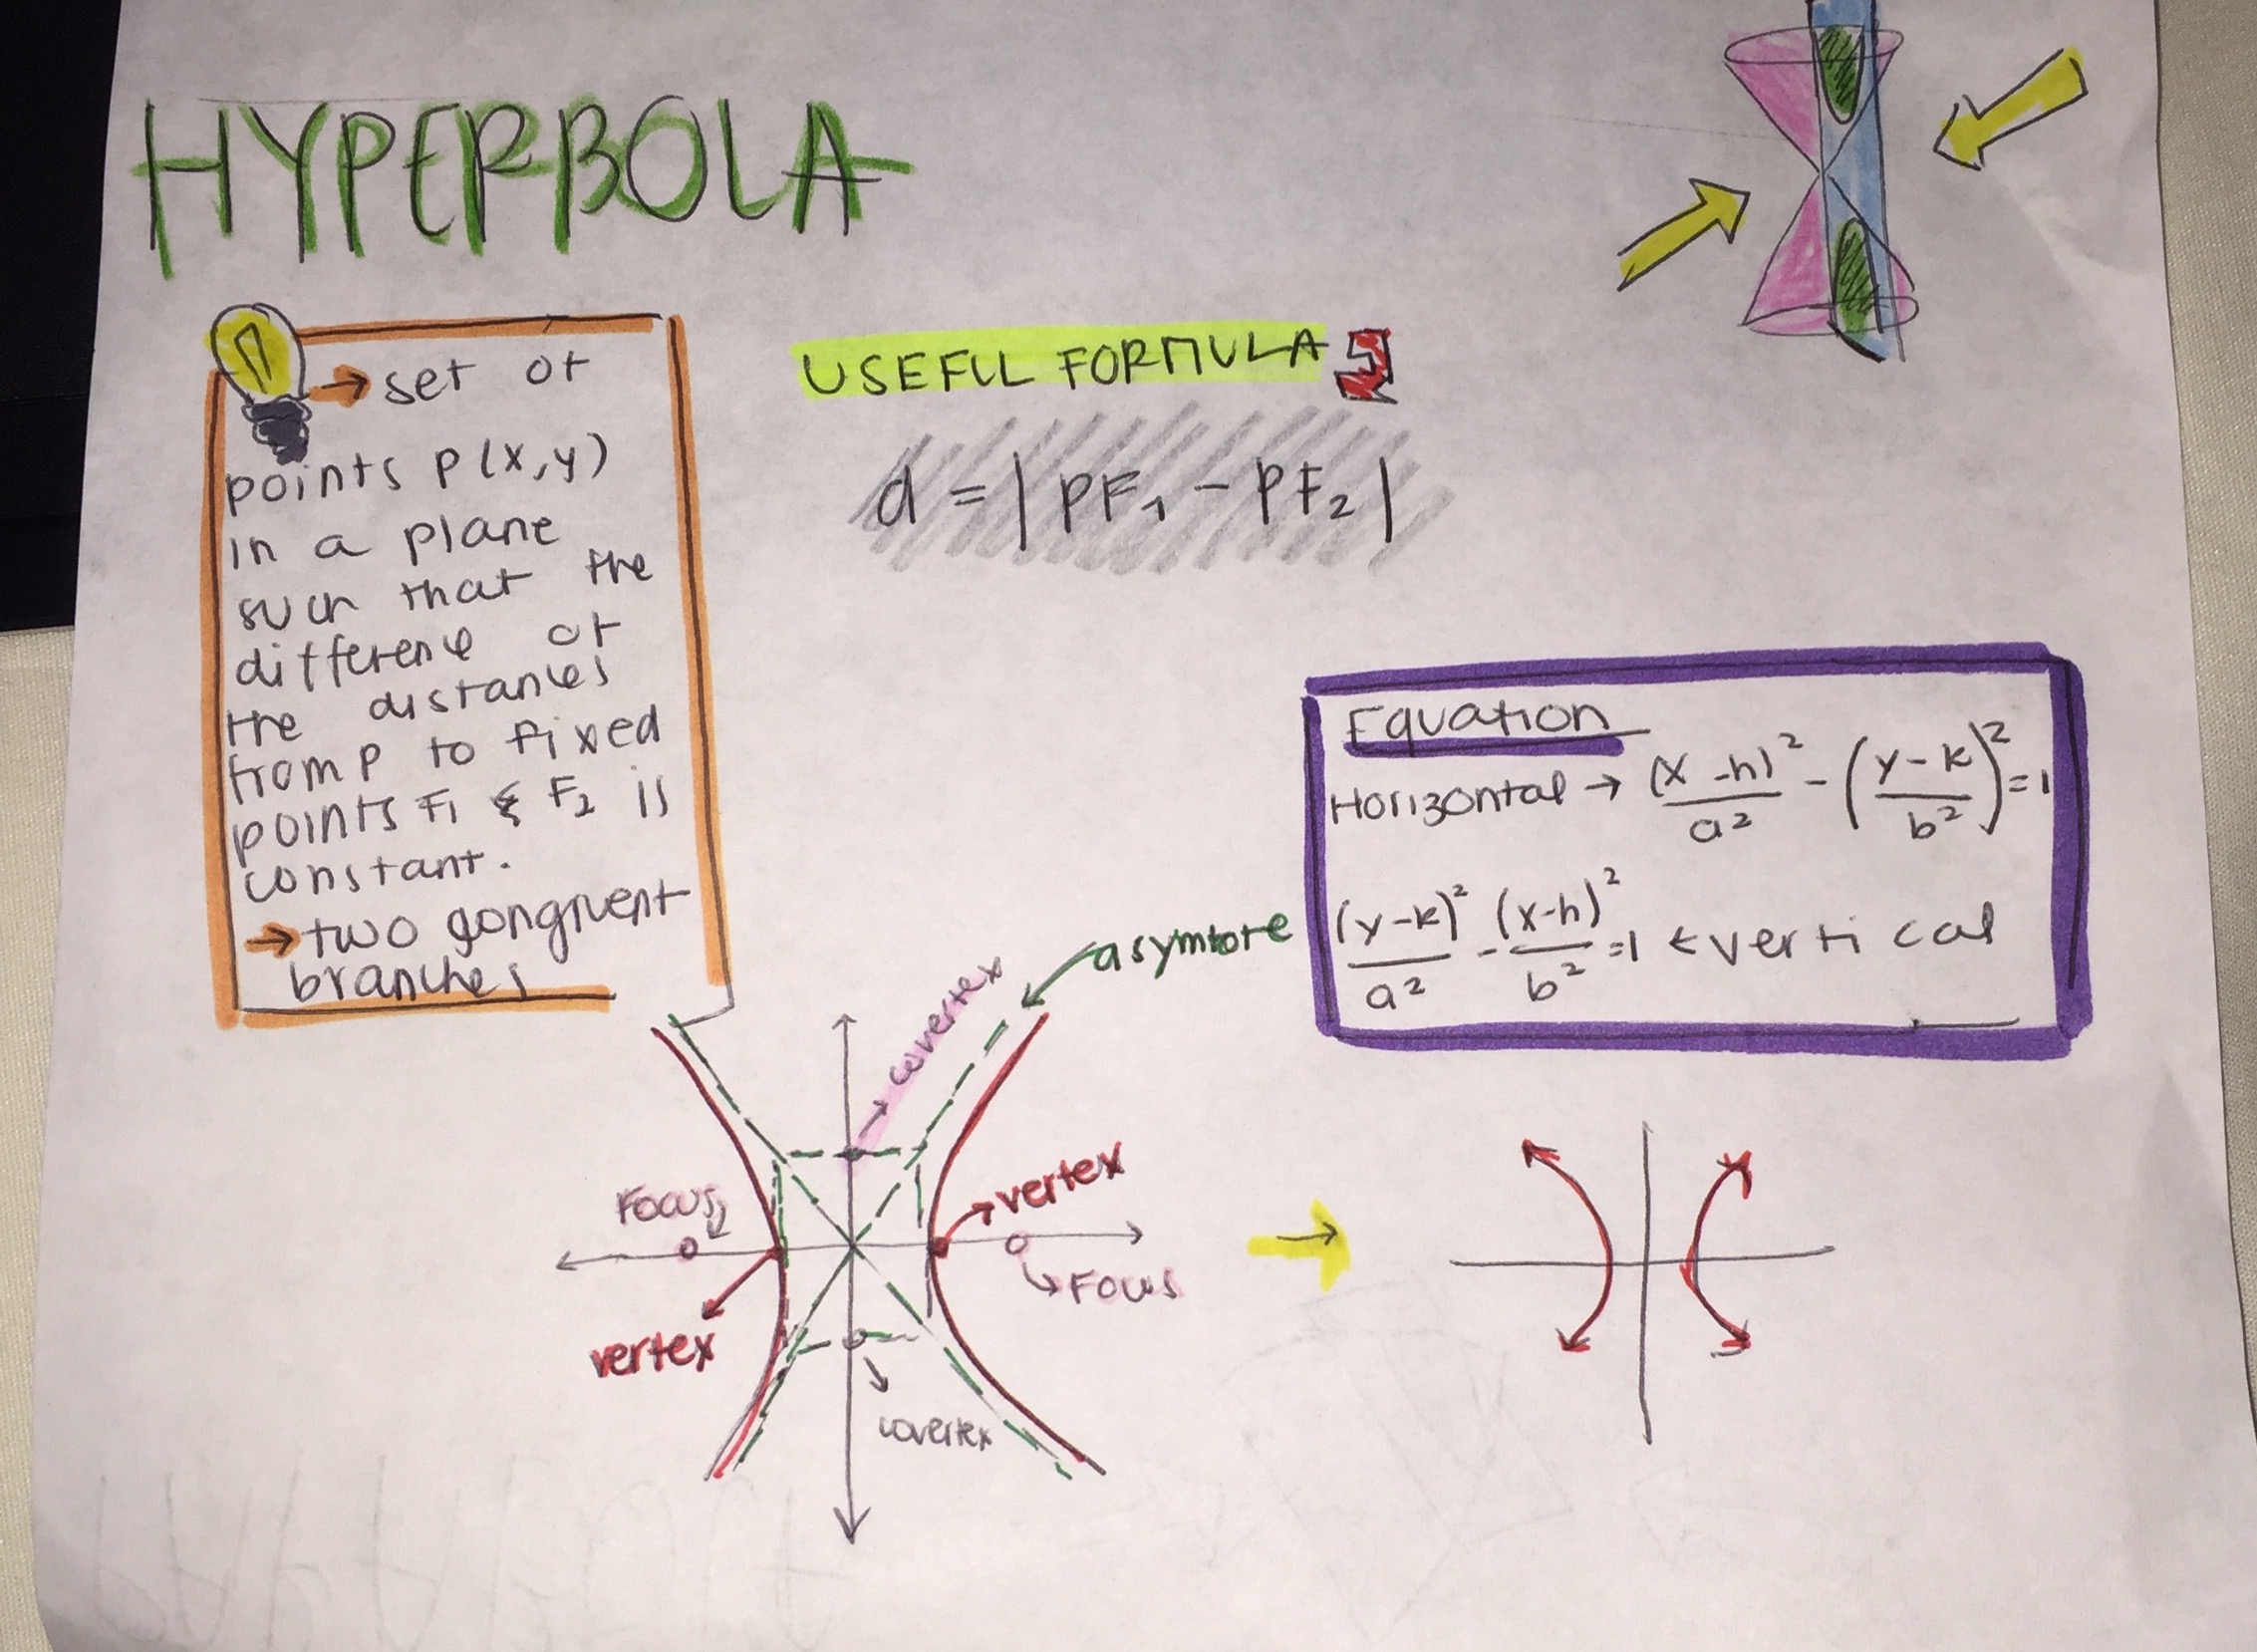 HYPERBOLA
→ set of
points P(x,y)
in a plane
such that the
difference of
the distances
from P to fixed
points F₁ & F₂ is
constant.
→ two gongruent
branches
USEFUL FORMULAS
d = | PF₁ - PF₂ |
Equation
Horizontal → (x-h)²/a² - (y-k/b²)² = 1
(y-k)²/a² - (x-h)²/b² = 1 ← vertical
asymtote
→ covertex
vertex
Focus
Focus
vertex
covertex